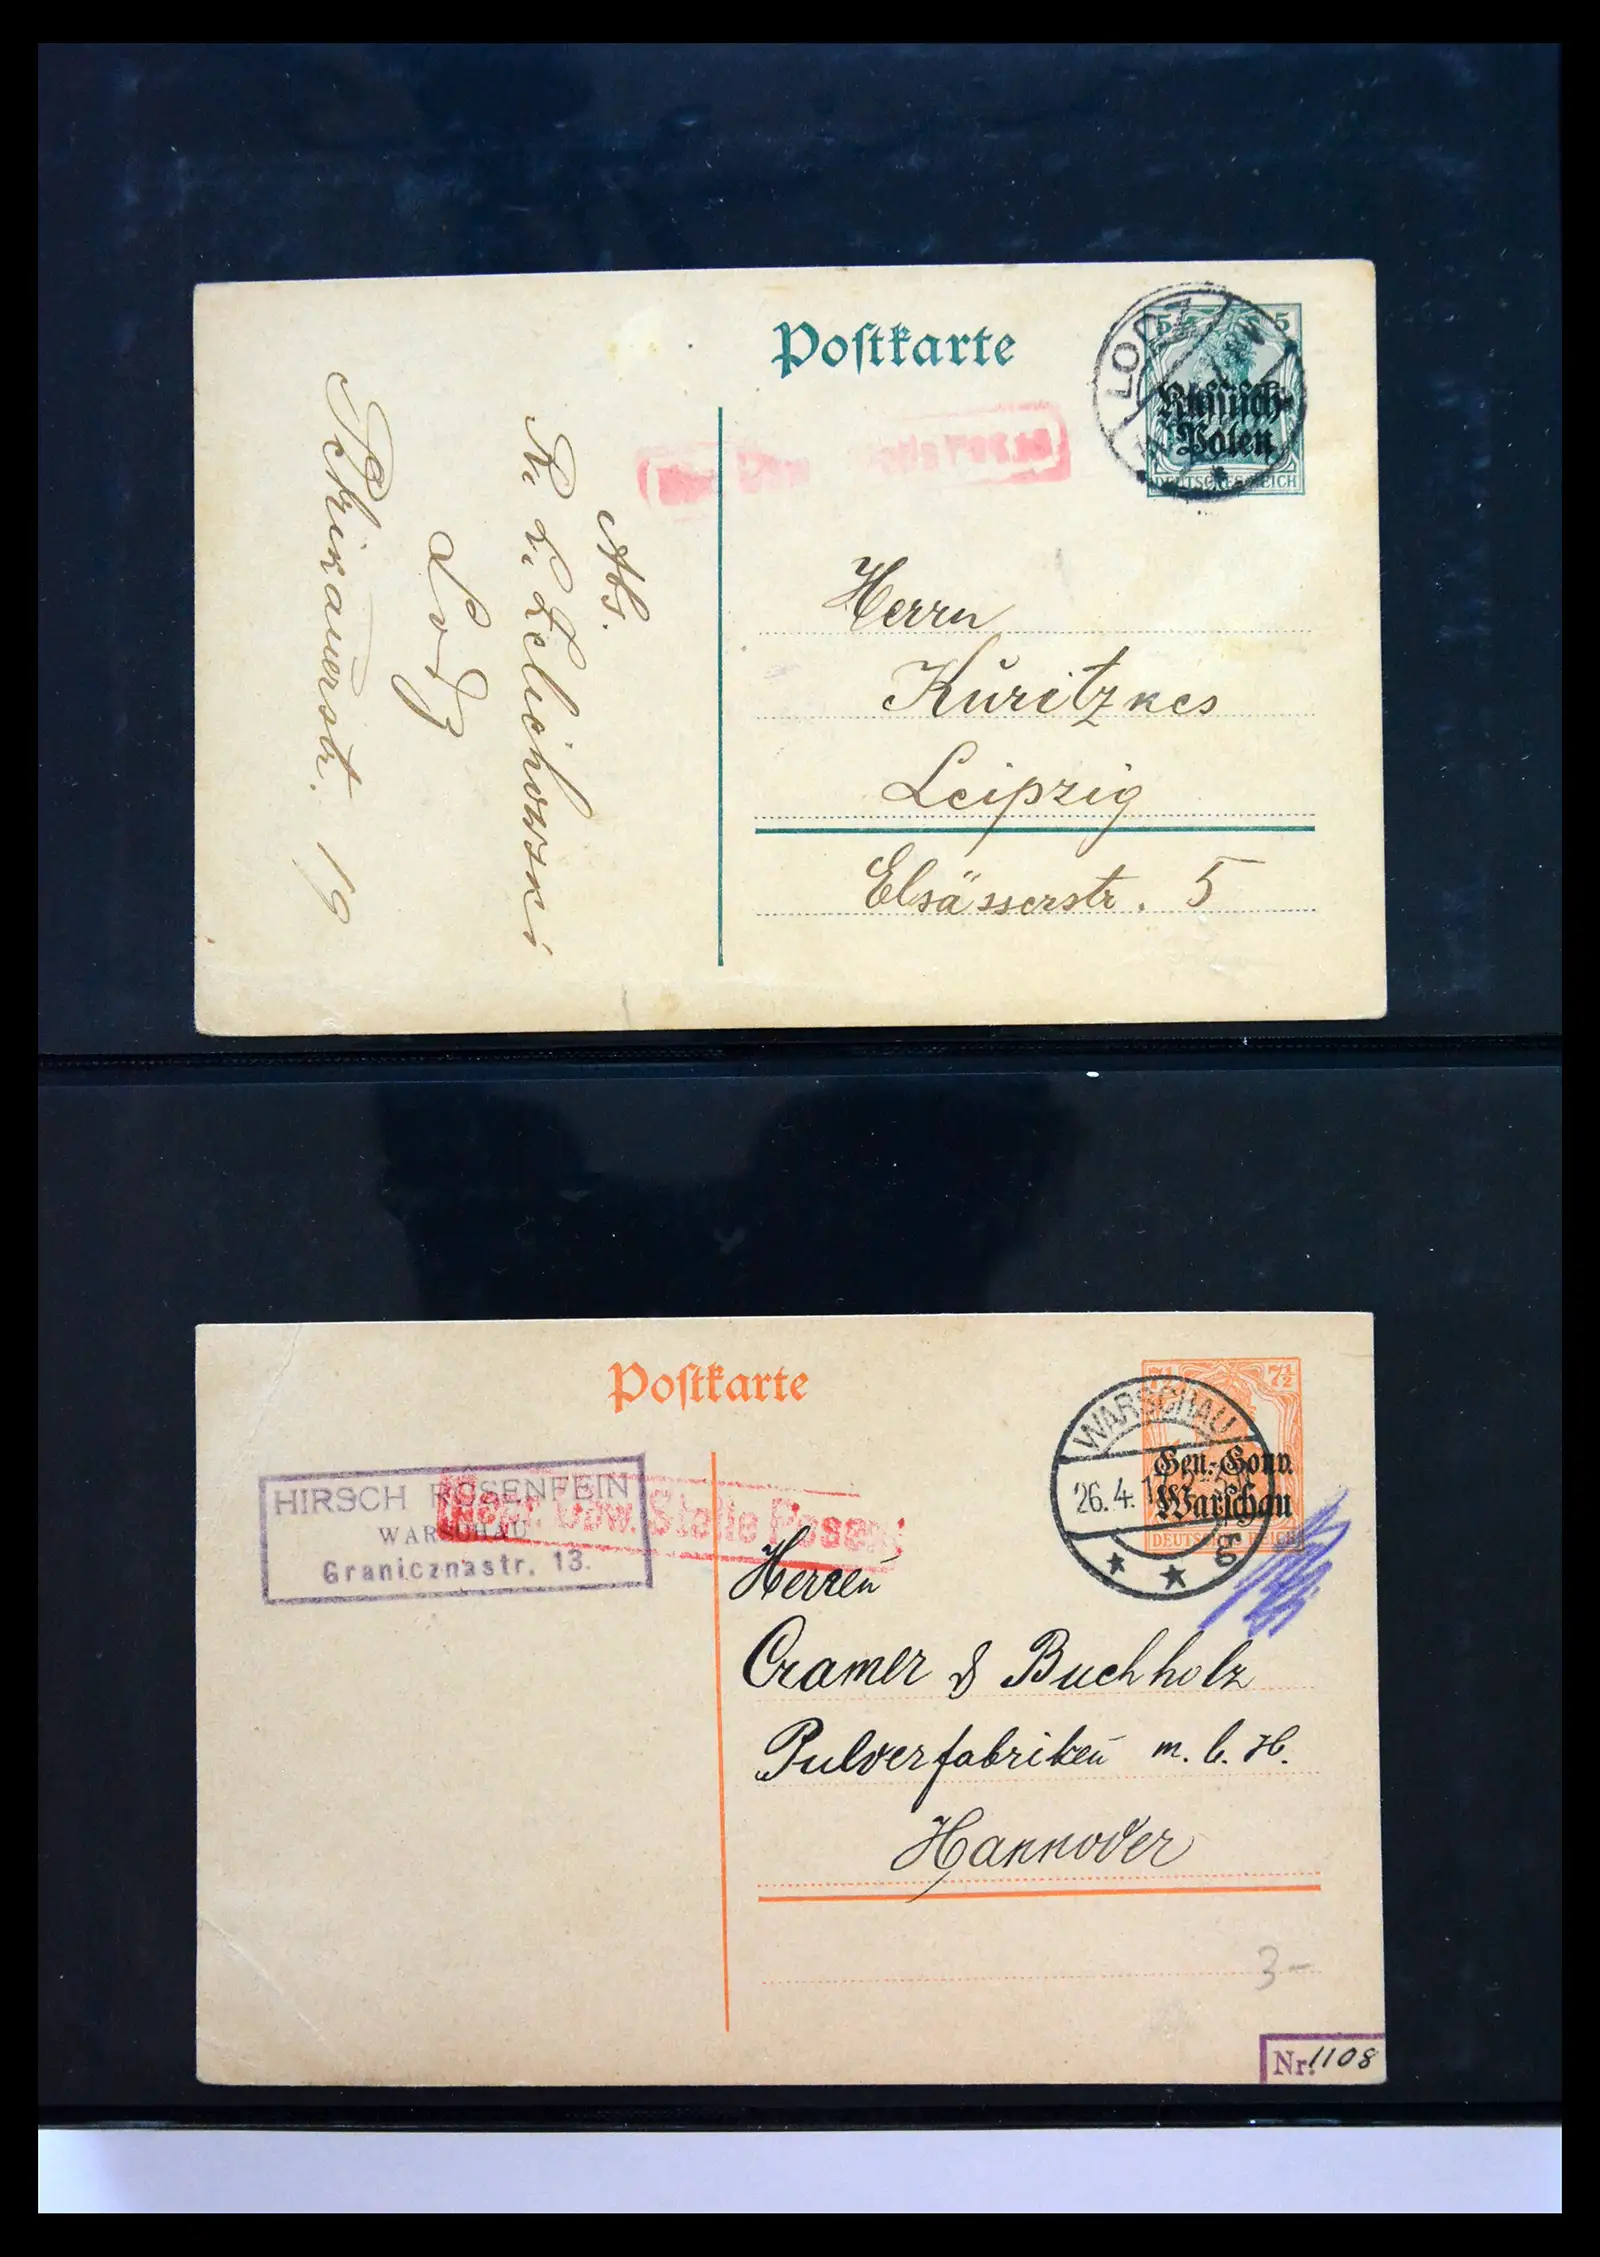 Postkarte
5 5
Russisch-
Polen
DEUTSCHES REICH
LODZ
Posen
Herrn
Kuritzkes
Leipzig
Elsässerstr. 5
Abs.
Lodz
Petrikauerstr. 19
Postkarte
7½ 7½
WARSCHAU
26.4.1
Gen.-Gouv.
Warschau
DEUTSCHES REICH
HIRSCH ROSENFEIN
WARSCHAU
Granicznastr. 13.
Gepr. Übw. Stelle Posen
Herren
Cramer & Buchholz
Pulverfabriken m. b. H.
Hannover
3-
Nr. 1108